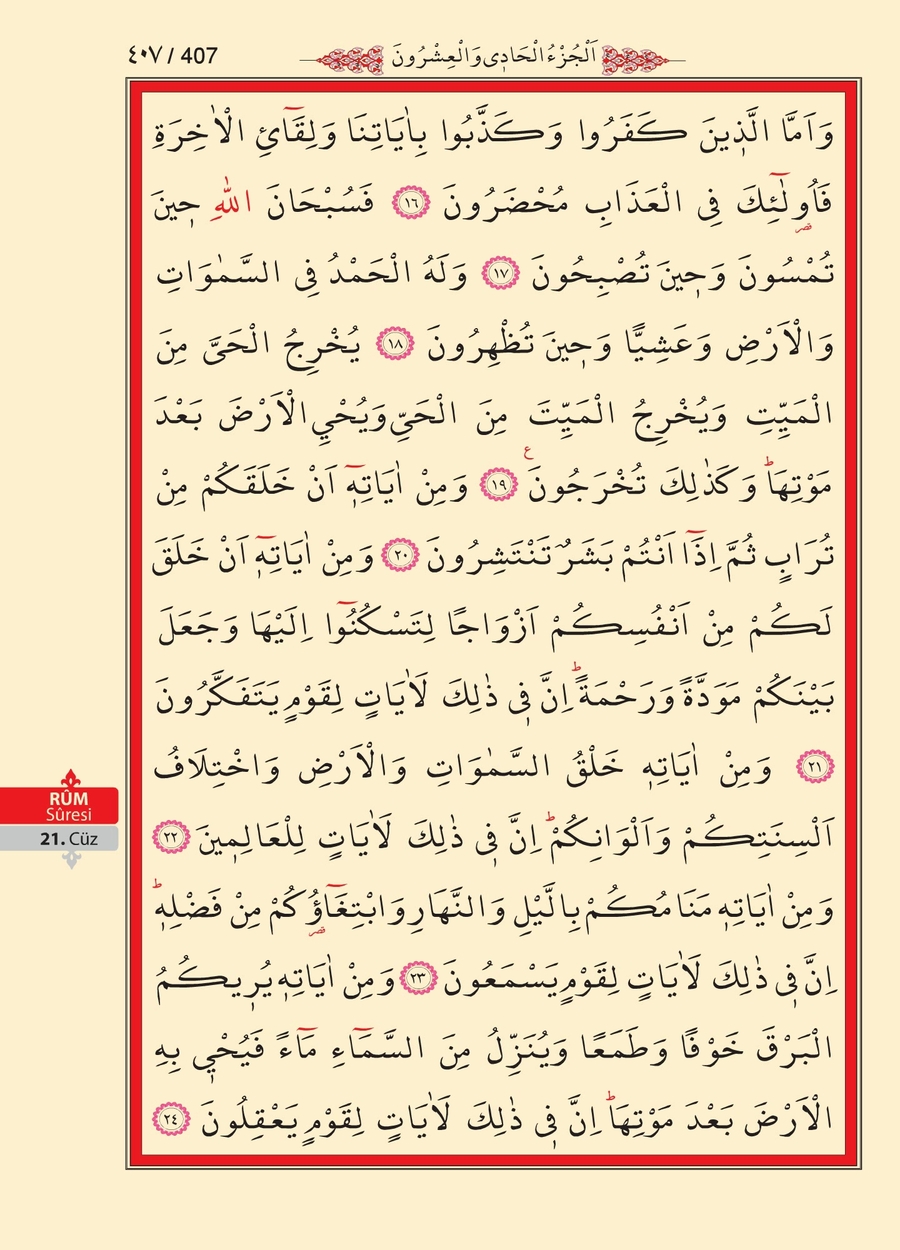 ٤٠٧ / 407
اَلْجُزْءُ الْحَادِي وَالْعِشْرُونَ
وَاَمَّا الَّذ۪ينَ كَفَرُوا وَكَذَّبُوا بِاٰيَاتِنَا وَلِقَٓائِ الْاٰخِرَةِ
فَاُو۬لٰٓئِكَ فِي الْعَذَابِ مُحْضَرُونَ ﴿١٦﴾ فَسُبْحَانَ اللّٰهِ ح۪ينَ
قصر
تُمْسُونَ وَح۪ينَ تُصْبِحُونَ ﴿١٧﴾ وَلَهُ الْحَمْدُ فِي السَّمٰوَاتِ
وَالْاَرْضِ وَعَشِيًّا وَح۪ينَ تُظْهِرُونَ ﴿١٨﴾ يُخْرِجُ الْحَيَّ مِنَ
الْمَيِّتِ وَيُخْرِجُ الْمَيِّتَ مِنَ الْحَيِّ وَيُحْيِ الْاَرْضَ بَعْدَ
مَوْتِهَاۜ وَكَذٰلِكَ تُخْرَجُونَ ع ﴿١٩﴾ وَمِنْ اٰيَاتِه۪ٓ اَنْ خَلَقَكُمْ مِنْ
تُرَابٍ ثُمَّ اِذَٓا اَنْتُمْ بَشَرٌ تَنْتَشِرُونَ ﴿٢٠﴾ وَمِنْ اٰيَاتِه۪ٓ اَنْ خَلَقَ
لَكُمْ مِنْ اَنْفُسِكُمْ اَزْوَاجًا لِتَسْكُنُٓوا اِلَيْهَا وَجَعَلَ
بَيْنَكُمْ مَوَدَّةً وَرَحْمَةًۜ اِنَّ ف۪ي ذٰلِكَ لَاٰيَاتٍ لِقَوْمٍ يَتَفَكَّرُونَ
﴿٢١﴾ وَمِنْ اٰيَاتِه۪ خَلْقُ السَّمٰوَاتِ وَالْاَرْضِ وَاخْتِلَافُ
اَلْسِنَتِكُمْ وَاَلْوَانِكُمْۜ اِنَّ ف۪ي ذٰلِكَ لَاٰيَاتٍ لِلْعَالِم۪ينَ ﴿٢٢﴾
وَمِنْ اٰيَاتِه۪ مَنَامُكُمْ بِالَّيْلِ وَالنَّهَارِ وَابْتِغَٓاؤُ۬كُمْ مِنْ فَضْلِه۪ۜ
قصر
اِنَّ ف۪ي ذٰلِكَ لَاٰيَاتٍ لِقَوْمٍ يَسْمَعُونَ ﴿٢٣﴾ وَمِنْ اٰيَاتِه۪ يُر۪يكُمُ
الْبَرْقَ خَوْفًا وَطَمَعًا وَيُنَزِّلُ مِنَ السَّمَٓاءِ مَٓاءً فَيُحْي۪ بِهِ
الْاَرْضَ بَعْدَ مَوْتِهَاۜ اِنَّ ف۪ي ذٰلِكَ لَاٰيَاتٍ لِقَوْمٍ يَعْقِلُونَ ﴿٢٤﴾
RÛM
Sûresi
21. Cüz